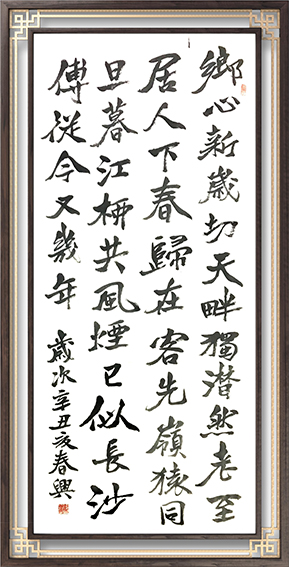 鄉心新歲切天畔獨潸然老至
居人下春歸在客先嶺猿同
旦暮江柳共風煙已似長沙
傅從今又幾年 歲次辛丑春興